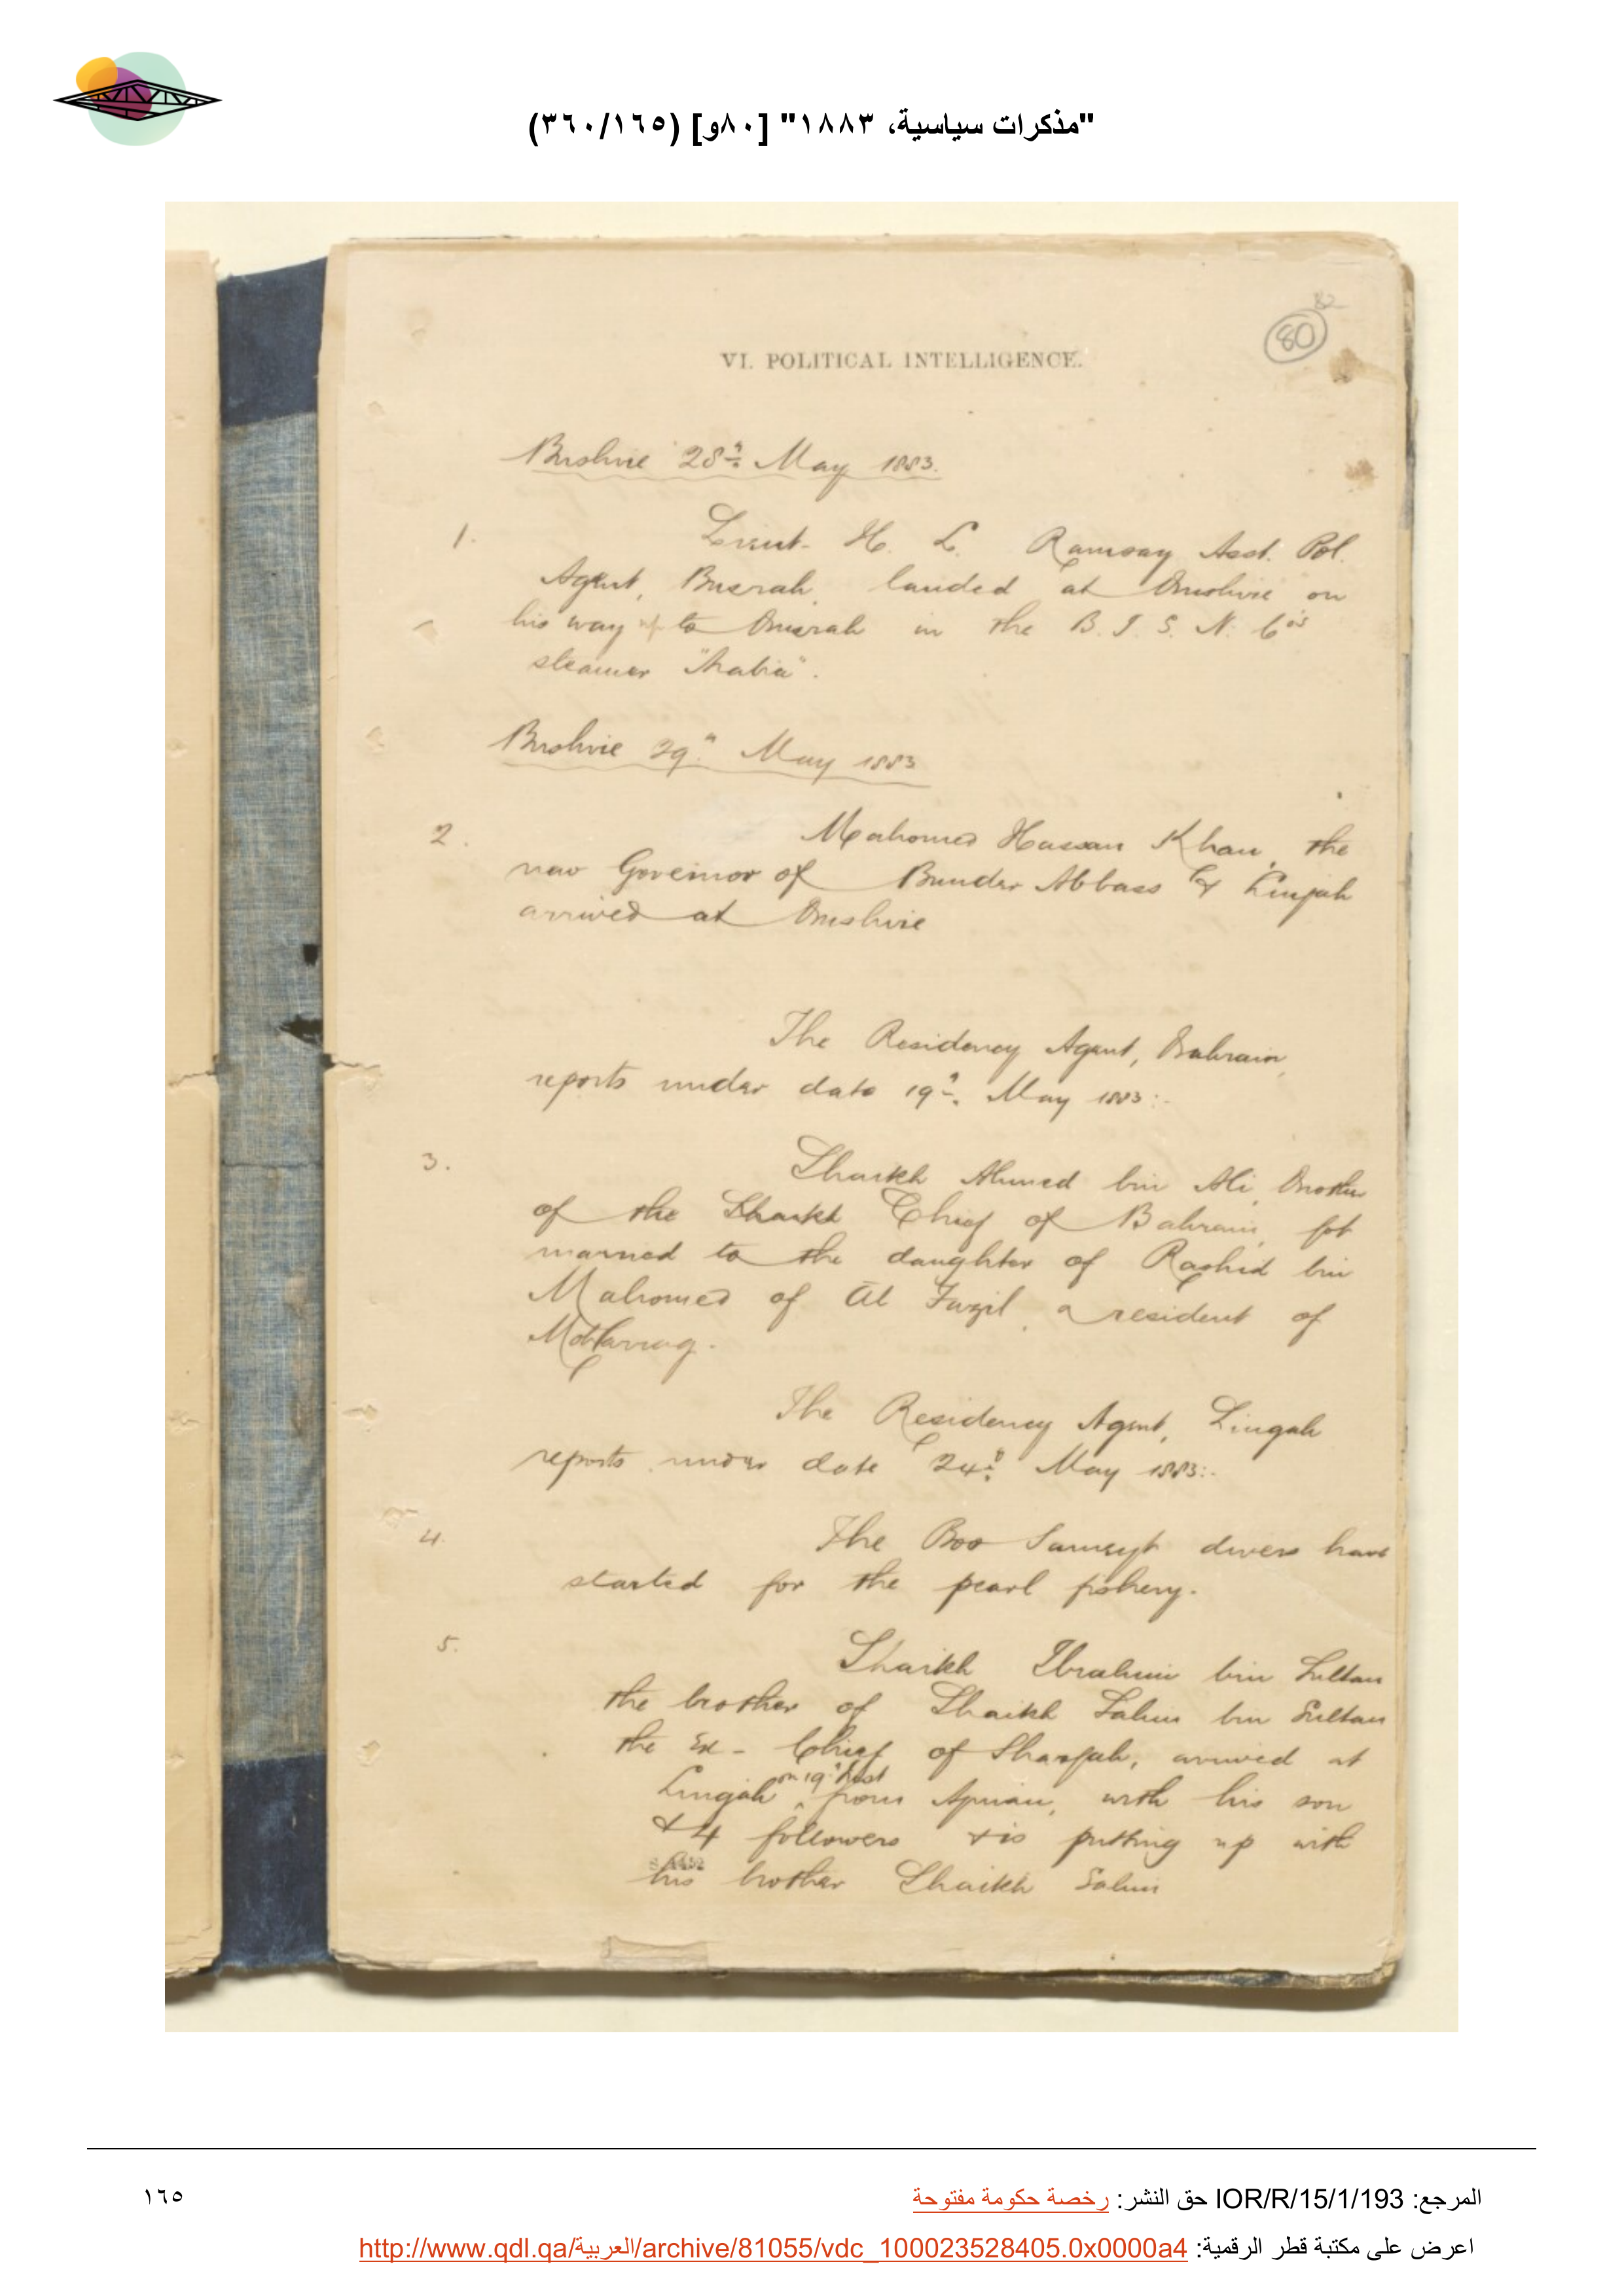 "مذكرات سياسية، ١٨٨٣" [٨٠و] (٣٦٠/١٦٥)
82
80
VI. POLITICAL INTELLIGENCE.
Bushire 28th May 1883.
1. Lieut. H. L. Ramsay Asst. Pol.
Agent, Busrah, landed at Bushire on
his way up to Busrah in the B. I. S. N. Co's
steamer "Arabia".
Bushire 29th May 1883
2. Mahomed Hassan Khan, the
new Governor of Bunder Abbass & Lingah
arrived at Bushire
The Residency Agent, Bahrain,
reports under date 19th May 1883:-
3. Shaikh Ahmed bin Ali, Brother
of the Shaikh Chief of Bahrain, got
married to the daughter of Rashid bin
Mahomed of Al Fazil, a resident of
Moharrag.
The Residency Agent, Lingah
reports under date 24th May 1883:-
4. The Boo Sumeyt divers have
started for the pearl fishery.
5. Shaikh Ibrahim bin Sultan
the brother of Shaikh Salim bin Sultan
the Ex-Chief of Shargah, arrived at
Lingah on 19th Inst from Ajman, with his son
& 4 followers & is putting up with
his brother Shaikh Salim
المرجع: IOR/R/15/1/193 حق النشر: رخصة حكومة مفتوحة
١٦٥
اعرض على مكتبة قطر الرقمية: http://www.qdl.qa/العربية/archive/81055/vdc_100023528405.0x0000a4